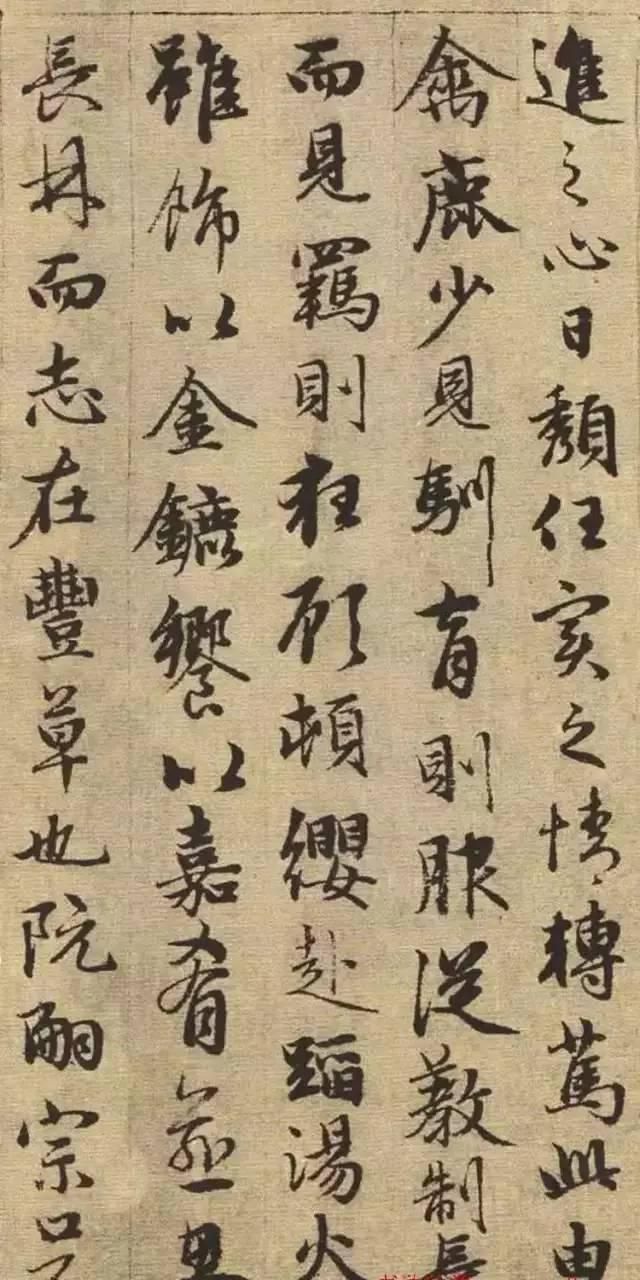 進之心日頹任實之情轉篤此由
禽鹿少見馴育則服從教制長
而見羈則狂顧頓纓赴蹈湯火
雖飾以金鑣饗以嘉肴愈思
長林而志在豐草也阮嗣宗口不